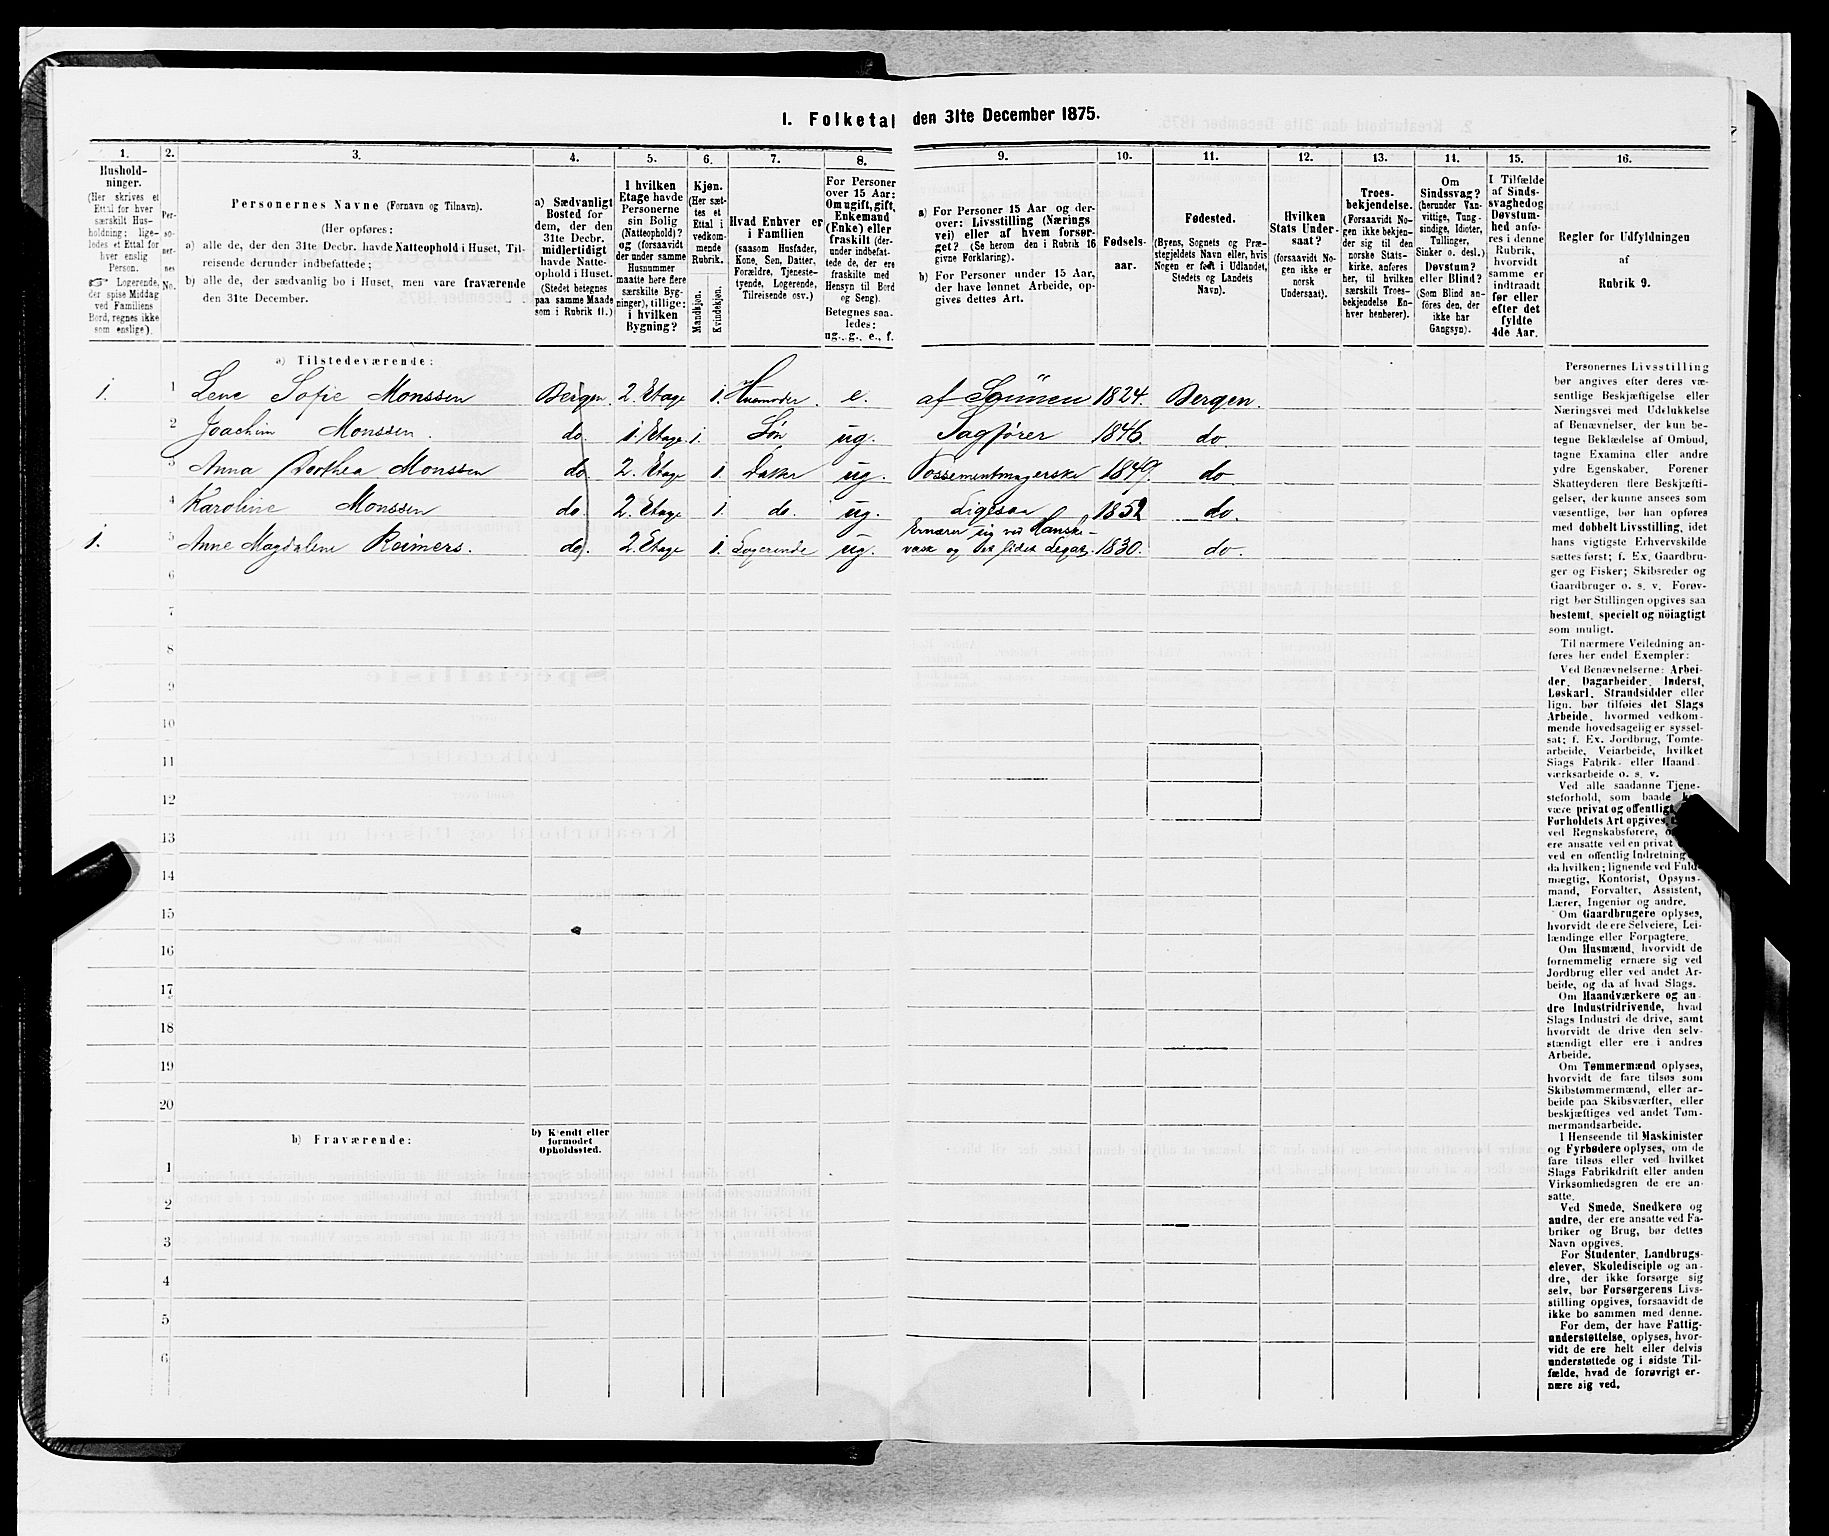 1. Folketal den 31te December 1875.
1. 2. 3. 4. 5. 6. 7. 8. 9. 10. 11. 12. 13. 14. 15. 16.
Hushold-
ninger.
(Her skrives et
Ettal for hver
særskilt Hus-
holdning; lige-
ledes et Ettal for
hver enslig
Person.
☞ Logerende,
der spise Middag
ved Familiens
Bord, regnes ikke
som enslige).
Per-
so-
ner-
nes
No.
Personernes Navne (Fornavn og Tilnavn).
(Her opføres:
a) alle de, der den 31te Decbr. havde Natteophold i Huset, Til-
reisende derunder indbefattede;
b) alle de, der sædvanlig bo i Huset, men vare fraværende
den 31te December.
a) Sædvanligt
Bosted for
dem, der den
31te Decbr.
midlertidigt
havde Natte-
ophold i Huset.
(Stedet betegnes
paa samme Maade
som i Rubrik 11.)
I hvilken
Etage havde
Personerne
sin Bolig
(Natteophold)?
og (forsaavidt
der under samme
Husnummer
maatte høre flere
særskilte Byg-
ninger), tillige:
i hvilken
Bygning?
Kjøn.
(Her sæt-
tes et
Ettal i
vedkom-
mende
Rubrik.
Mandkjøn.
Kvindekjøn.
Hvad Enhver er
i Familien
(saasom Husfader,
Kone, Søn, Datter,
Forældre, Tjeneste-
tyende, Logerende,
Tilreisende osv.)
For Personer
over 15 Aar:
Om ugift, gift,
Enkemand
(Enke) eller
fraskilt (der-
under indbefat-
tede de, der ere
fraskilte med
Hensyn til Bord
og Seng).
Betegnes saa-
ledes:
ug., g., e., f.
a) For Personer 15 Aar og der-
over: Livsstilling (Nærings
vei) eller af hvem forsør-
get? (Se herom den i Rubrik 16
givne Forklaring).
b) For Personer under 15 Aar,
der have lønnet Arbeide, op-
gives dettes Art.
Fødsels-
aar.
Fødested.
(Byens, Sognets og Præ-
stegjeldets Navn eller, hvis
Nogen er født i Udlandet,
Stedets og Landets
Navn).
Hvilken
Stats Under-
saat?
(forsaavidt No-
gen ikke er
norsk
Undersaat).
Troes-
bekjendelse.
(Forsaavidt No-
gen ikke bekjen-
der sig til den
norske Stats-
kirke, anføres
her, til hvilken
særskilt Troes-
bekjendelse En-
hver henhører).
Om
Sindssvag?
(herunder Van-
vittige, Tung-
sindige, Idioter,
Tullinger,
Sinker o. desl.)
Døvstum?
eller Blind?
(Som Blind an-
føres den, der
ikke har
Gangsyn).
I Tilfælde
af Sinds-
svaghed og
Døvstum-
hed anfø-
res i denne
Rubrik,
hvorvidt
samme er
indtraadt
før eller
efter det
fyldte
4de Aar.
Regler for Udfyldningen
af
Rubrik 9.
a) Tilstedeværende:
1. 1 Lene Sofie Monssen Bergen 2. Etage 1. Husmoder. e. af Sønnen 1824. Bergen.
2 Joachim Monssen. do. 1. Etage 1. Søn ug. Sagfører 1846. do.
3 Anna Dorthea Monssen do. 2. Etage 1. Datter ug. Possementmagerske 1849. do
4 Karoline Monssen do. 2. Etage 1. do. ug. Ligesaa 1852 do.
1. 5 Anne Magdalene Reimers. do. 2. Etage 1. Logerende ug. Ernærer sig ved Hanske-
vask og lidet Legat. 1830. do.
6
7
8
9
10
11
12
13
14
15
16
17
18
19
20
b) Fraværende: b) Kjendt eller
formodet
Opholdssted.
1
2
3
4
5
6
Personernes Livsstilling
bør angives efter deres væ-
sentlige Beskjæftigelse eller
Næringsvei med Udelukkelse
af Benævnelser, der kun be-
tegne Beklædelse af Ombud,
tagne Examina eller andre
ydre Egenskaber. Forener
Skatteyderen flere Beskjæfti-
gelser, der kunne ansees som
væsentlige, bør han opføres
med dobbelt Livsstilling, idet
hans vigtigste Erhvervskilde
sættes først; f. Ex. Gaardbru-
ger og Fisker; Skibsreder og
Gaardbruger o. s. v. Forøv-
rigt bør Stillingen opgives saa
bestemt, specielt og nöiagtigt
som muligt.
Til nærmere Veiledning an-
føres her endel Exempler:
Ved Benævnelserne: Arbei-
der, Dagarbeider, Inderst,
Løskarl, Strandsidder eller
lign. bør tilføies det Slags
Arbeide, hvormed vedkom-
mende hovedsagelig er syssel-
sat; f. Ex. Jordbrug, Tomte-
arbeide, Veiarbeide, hvilket
Slags Fabrik- eller Haand
værksarbeide o. s. v.
Ved alle saadanne Tjene-
steforhold, som baade
være privat og offentligt
Forholdets Art opgives,
ved Regnskabsførere,
ere ansatte ved en privat
ved en offentlig Indretning
da hvilken; lignende ved Fuld-
mægtig, Kontorist, Opsyns-
mand, Forvalter, Assistent,
Lærer, Ingeniør og andre.
Om Gaardbrugere oplyses,
hvorvidt de ere Selveiere, Lei-
lændinge eller Forpagtere.
Om Husmænd, hvorvidt de
fornemmelig ernære sig ved
Jordbrug eller ved andet Ar-
beide, og da af hvad Slags.
Om Haandværkere og an-
dre Industridrivende, hvad
Slags Industri de drive, samt
hvorvidt de drive den selv-
stændigt eller ere i andres
Arbeide.
Om Tømmermænd oplyses,
hvorvidt de fare tilsøs som
Skibstømmermænd, eller ar-
beide paa Skibsværfter, eller
beskjæftiges ved andet Tøm-
mermandsarbeide.
I Henseende til Maskinister
og Fyrbødere oplyses, om de
fare tilsøs eller ved hvilket
Slags Fabrikdrift eller anden
Virksomhedsgren de ere an-
satte.
Ved Smede, Snedkere og
andre, der ere ansatte ved Fa-
briker og Brug, bør dettes
Navn opgives.
For Studenter, Landbrugs-
elever, Skoledisciple og an-
dre, der ikke forsørge sig
selv, bør Forsørgerens Livs-
stilling opgives, forsaavidt de
ikke bo sammen med denne.
For dem, der have Fattig-
understøttelse, oplyses, hvor-
vidt de ere helt eller delvis
understøttede og i sidste Til-
fælde, hvad de forøvrigt er-
nære sig ved.